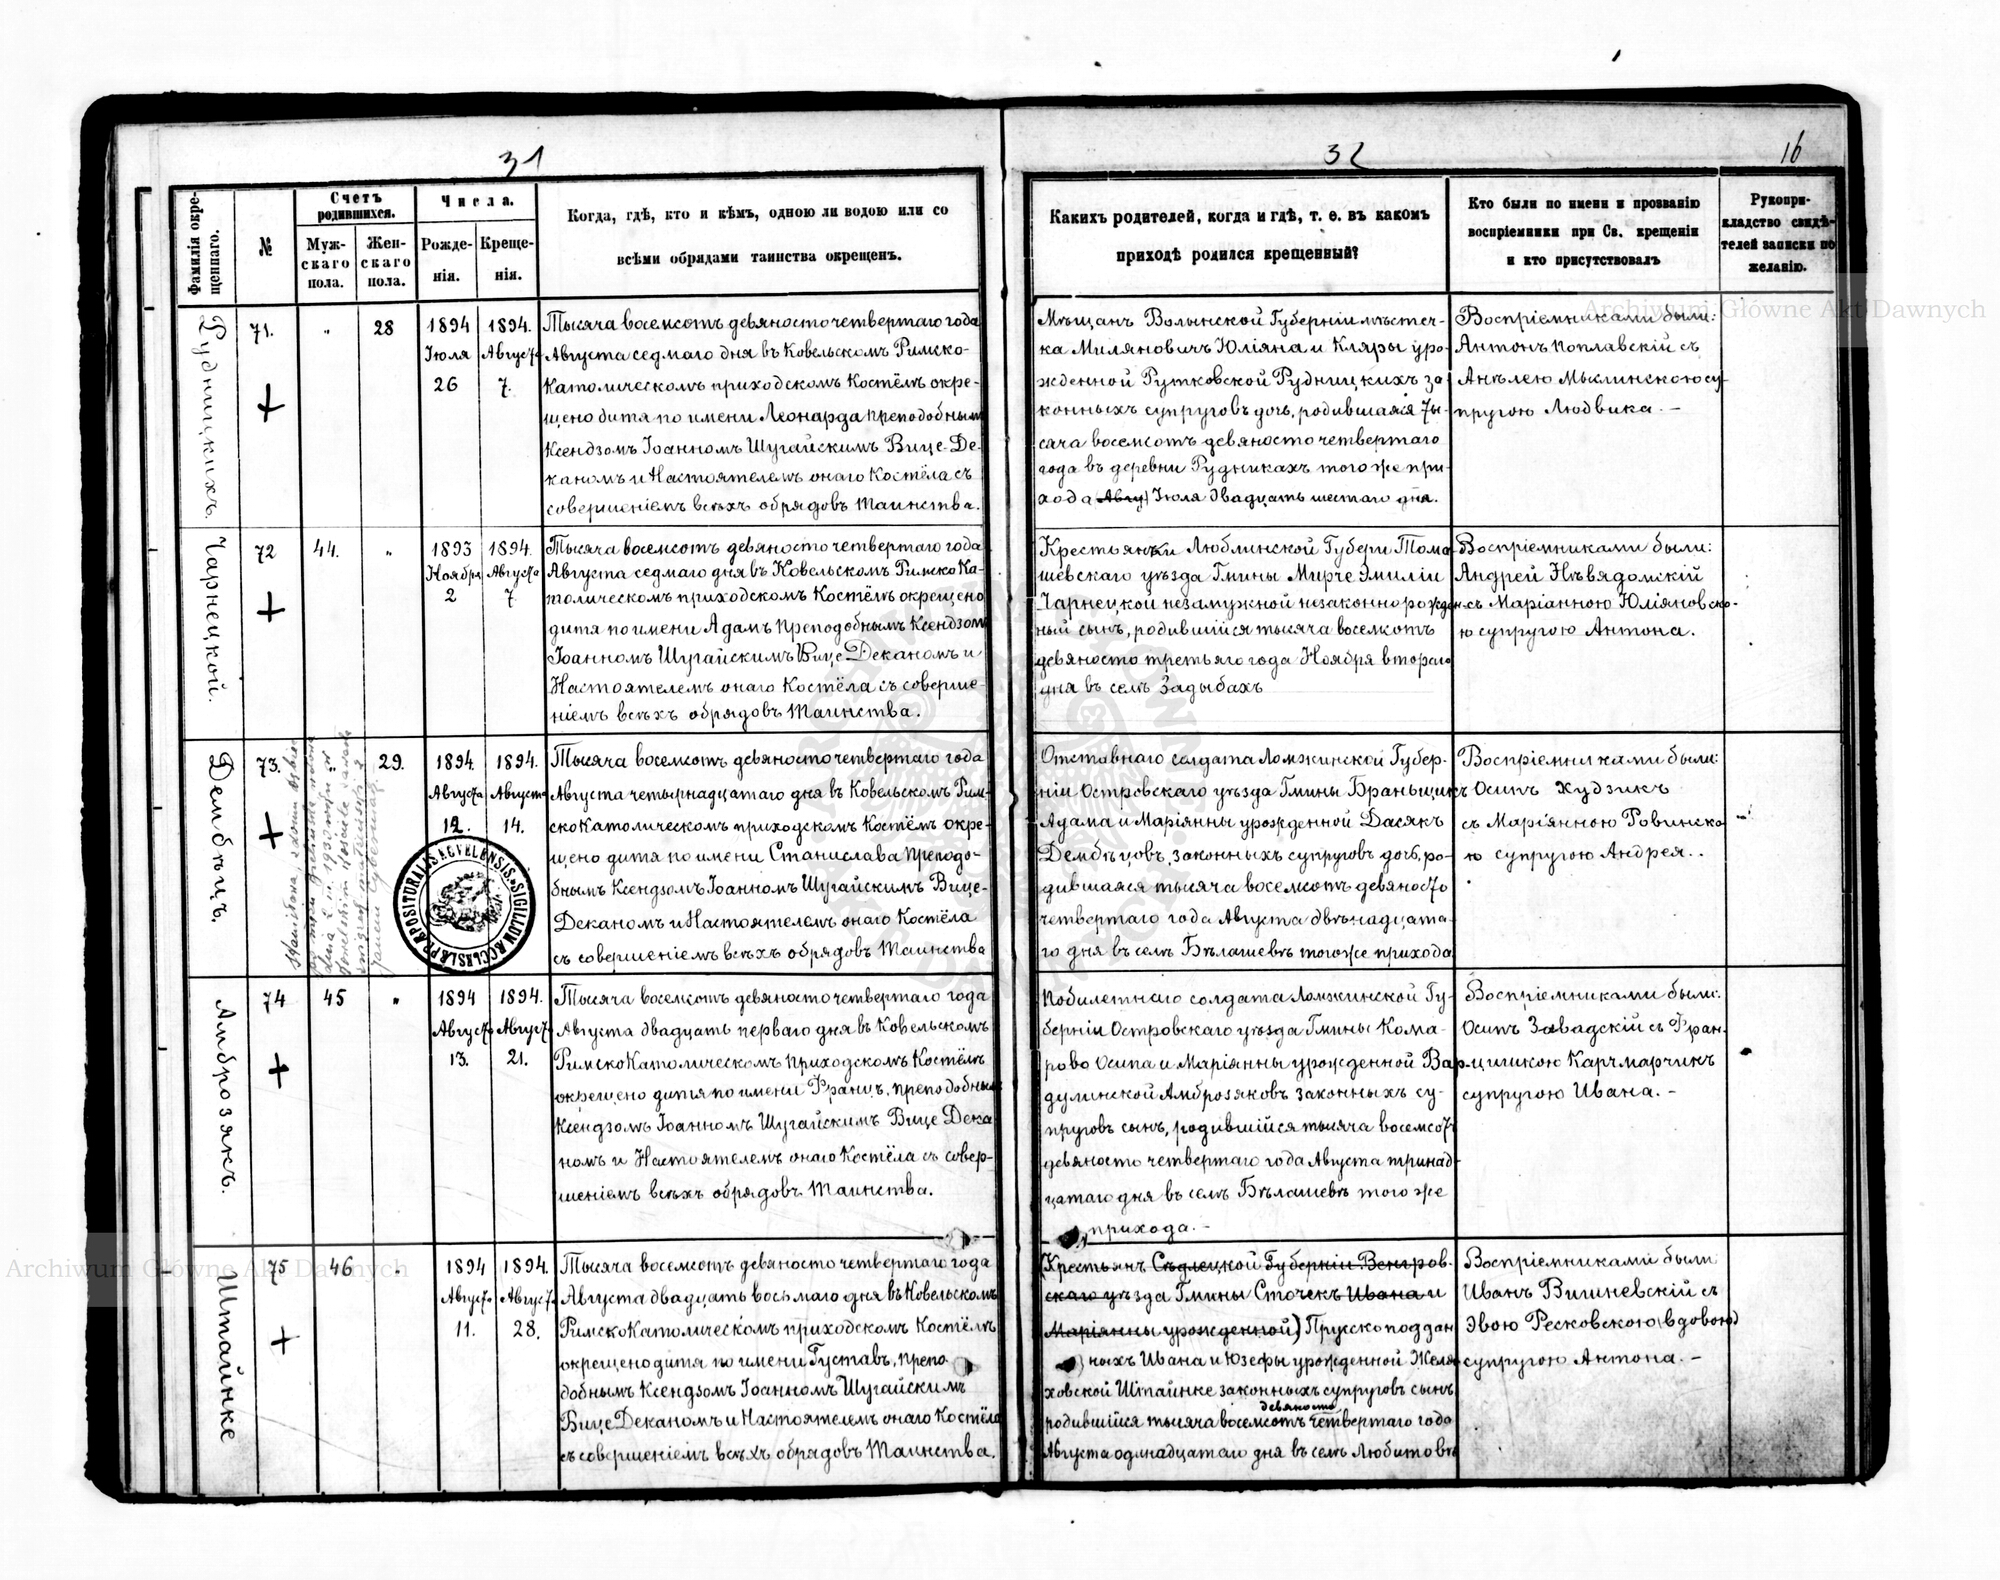 31
Фамилія окрещеннаго.
№
Счетъ родившихся.
Мужскаго пола.
Женскаго пола.
Числа.
Рожденія.
Крещенія.
Когда, гдѣ, кто и кѣмъ, одною ли водою или со
всѣми обрядами таинства окрещенъ.
Рудницкихъ.
71.
"
28
1894
Іюля
26
1894.
Августа
7.
Тысяча восемсотъ девяносто четвертаго года
Августа седмаго дня въ Ковельскомъ Римско-
Католическомъ приходскомъ Костёлѣ окре-
щено дитя по имени Леонарда преподобнымъ
Ксендзомъ Іоанномъ Шугайскимъ Вице-Де-
каномъ и Настоятелемъ онаго Костёла съ
совершеніемъ всѣхъ обрядовъ Таинства.
Чарнецкой.
72
44.
"
1893
Ноября
2
1894.
Августа
7
Тысяча восемсотъ девяносто четвертаго года
Августа седмаго дня въ Ковельскомъ Римско Ка-
толическомъ приходскомъ Костёлѣ окрещено
дитя по имени Адамъ преподобнымъ Ксендзомъ
Іоанномъ Шугайскимъ Вице Деканомъ и
Настоятелемъ онаго Костёла съ соверше-
ніемъ всѣхъ обрядовъ Таинства.
Дембѣцъ.
73.
"
29.
1894.
Августа
12.
1894.
Августа
14.
Тысяча восемсотъ девяносто четвертаго года
Августа четырнадцатаго дня въ Ковельскомъ Рим-
ско Католическомъ приходскомъ Костёлѣ окре-
щено дитя по имени Станислава преподо-
бнымъ Ксендзомъ Іоанномъ Шугайскимъ Вице-
Деканомъ и Настоятелемъ онаго Костёла
съ совершеніемъ всѣхъ обрядовъ Таинства
Амброзякъ.
74
45
"
1894
Августа
13.
1894.
Августа
21.
Тысяча восемсотъ девяносто четвертаго года
Августа двадцать перваго дня въ Ковельскомъ
Римско Католическомъ приходскомъ Костёлѣ
окрещено дитя по имени Францъ, преподобнымъ
Ксендзомъ Іоанномъ Шугайскимъ Вице Дека
номъ и Настоятелемъ онаго Костёла съ совер-
шеніемъ всѣхъ обрядовъ Таинства.
Штайнке
75
46
1894
Августа
11.
1894.
Августа
28.
Тысяча восемсотъ девяносто четвертаго года
Августа двадцать восьмаго дня въ Ковельскомъ
Римско Католическомъ приходскомъ Костёлѣ
окрещено дитя по имени Густавъ, препо-
добнымъ Ксендзомъ Іоанномъ Шугайскимъ
Вице Деканомъ и Настоятелемъ онаго Костёла
съ совершеніемъ всѣхъ обрядовъ Таинства.
32
16
Какихъ родителей, когда и гдѣ, т. е. въ какомъ
приходѣ родился крещенный?
Кто были по имени и прозванію
воспріемники при Св. крещеніи
и кто присутствовалъ
Рукопри-
кладство свидѣ-
телей записки по
желанію.
Мѣщанъ Волынской Губерніи мѣстеч-
ка Миляновичъ Юліяна и Кляры уро-
жденной Рутковской Рудницкихъ за
конныхъ супруговъ дочь, родившаяся Ты-
сяча восемсотъ девяносто четвертаго
года въ деревни Рудникахъ того же при-
хода (Авгу) Іюля двадцать шестаго дня.
Воспріемниками были:
Антонъ Поплавскій съ
Анѣлею Мыклинскою су-
пругою Людвика. —
Крестьянки Люблинской Губерн Тома-
шевскаго уѣзда Гмины Мирче Эмиліи
Чарнецкой незамужной незаконно рожден-
ный сынъ, родившійся тысяча восемсотъ
девяносто третьяго года Ноября втораго
дня въ селѣ Задыбахъ
Воспріемниками были:
Андрей Нѣвядомскій
съ Маріанною Юліяновско-
ю супругою Антона.
Отставнаго солдата Ломжинской Губер-
ніи Островскаго уѣзда Гмины Браньщикъ
Адама и Маріянны урожденной Дасякъ
Дембѣцовъ, законныхъ супруговъ дочь, ро-
дившаяся тысяча восемсотъ девяносто
четвертаго года Августа двѣнадцата-
го дня въ селѣ Бѣлашевѣ того же прихода
Воспріемниками были:
Осипъ Худзикъ
съ Маріянною Ровинско-
ю супругою Андрея..
Побилетнаго солдата Ломжинской Гу-
берніи Островскаго уѣзда Гмины Кома-
рово Осипа и Маріянны урожденной Вар-
дулинской Амброзяковъ законныхъ су-
пруговъ сынъ, родившійся тысяча восемсотъ
девяносто четвертаго года Августа тринад-
цатаго дня въ селѣ Бѣлашевѣ того же
прихода. —
Воспріемниками были:
Осипъ Завадскій съ Фран-
цишкою Карчмарчикъ
супругою Ивана. —
(Крестьянъ Сѣдлецкой Губерніи Венгров-
скаго уѣзда Гмины Сточекъ Ивана и
Маріянны урожденной) Прусско поддан
ныхъ Ивана и Юзефы урожденной Желя
ховской Штайнке законныхъ супруговъ сынъ
девяносто
родившійся тысяча восемсотъ четвертаго года
Августа одинадцатаго дня въ селѣ Любитовѣ
Воспріемниками были
Иванъ Вишневскій съ
Эвою Ресковскою (вдовою)
супругою Антона. —
Archiwum Główne Akt Dawnych
Archiwum Główne Akt Dawnych